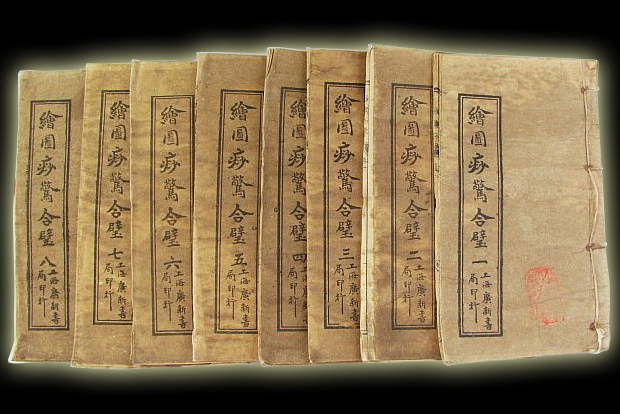 繪圖痧驚合璧一
上海廣新書
局印行
繪圖痧驚合璧二
上海廣新書
局印行
繪圖痧驚合璧三
上海廣新書
局印行
繪圖痧驚合璧四
局印行
繪圖痧驚合璧五
上海廣新書
局印行
繪圖痧驚合璧六
上海廣新書
局印行
繪圖痧驚合璧七
上海廣新書
局印行
繪圖痧驚合璧八
上海廣新書
局印行